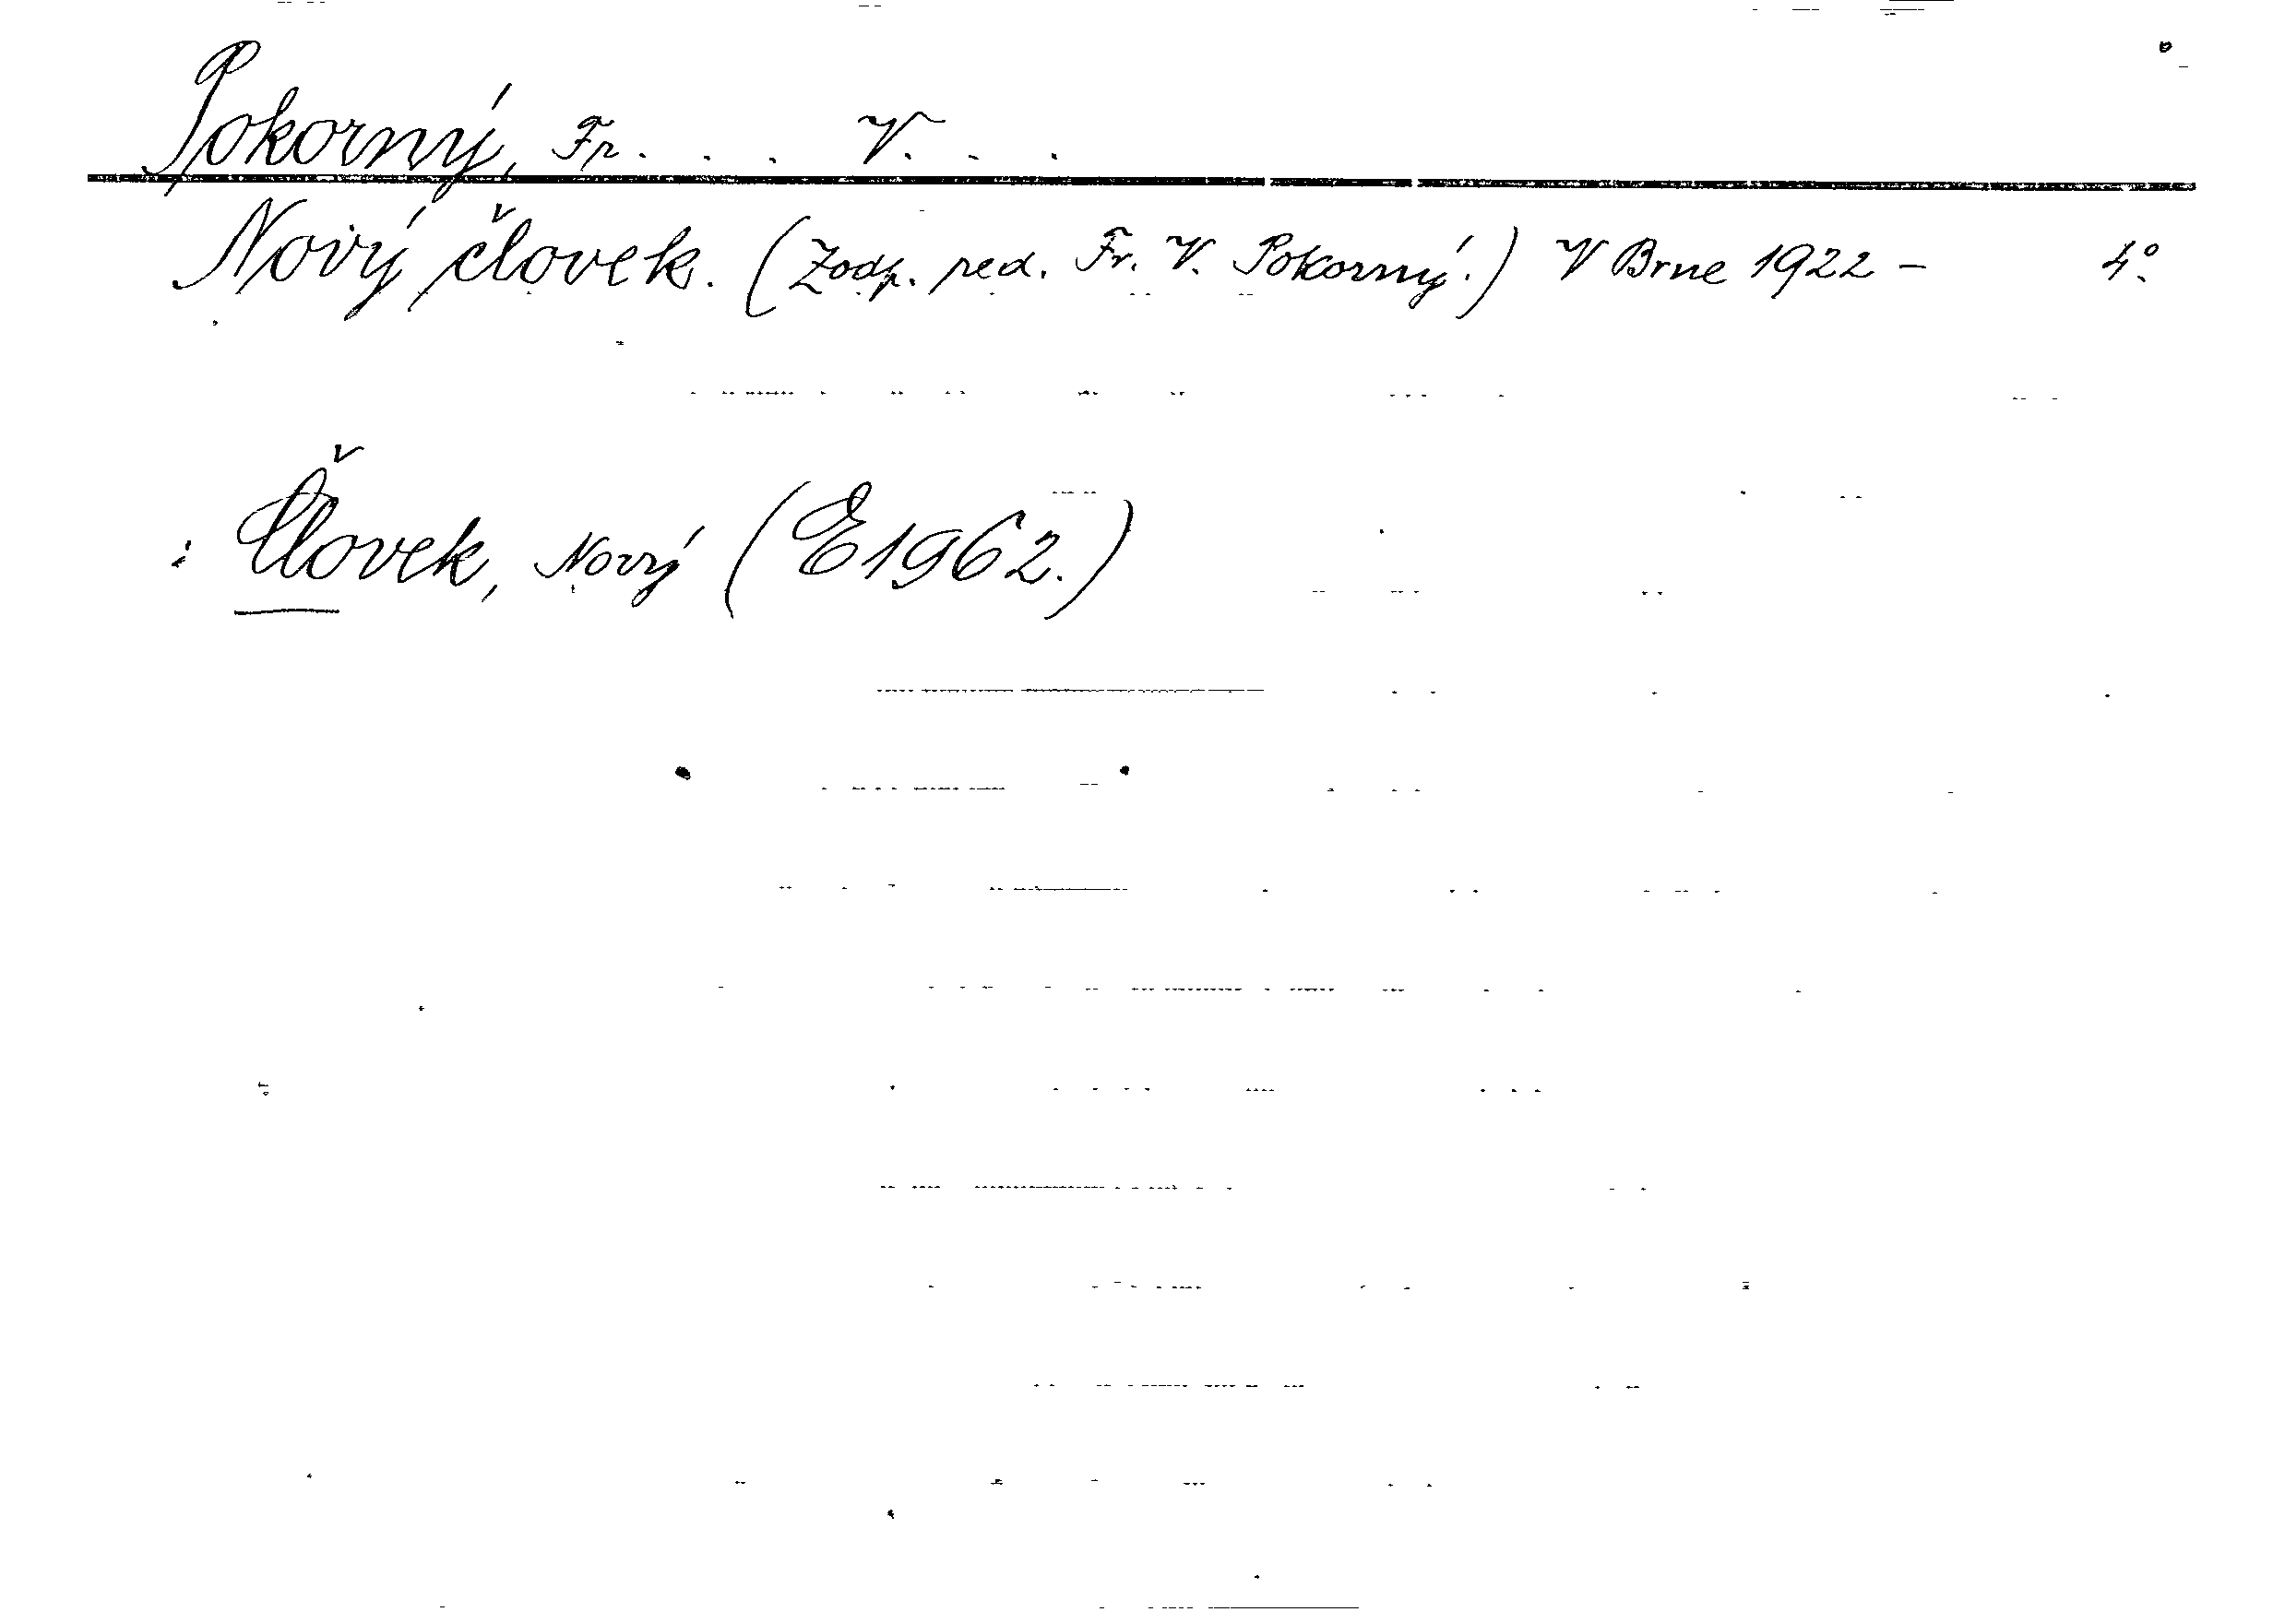 Pokorný, Fr. . . V. . .
Nový človek. (Zodp. red. Fr. V. Pokorný.) V Brne 1922 – 4°.
: Človek, Nový (E1962.)